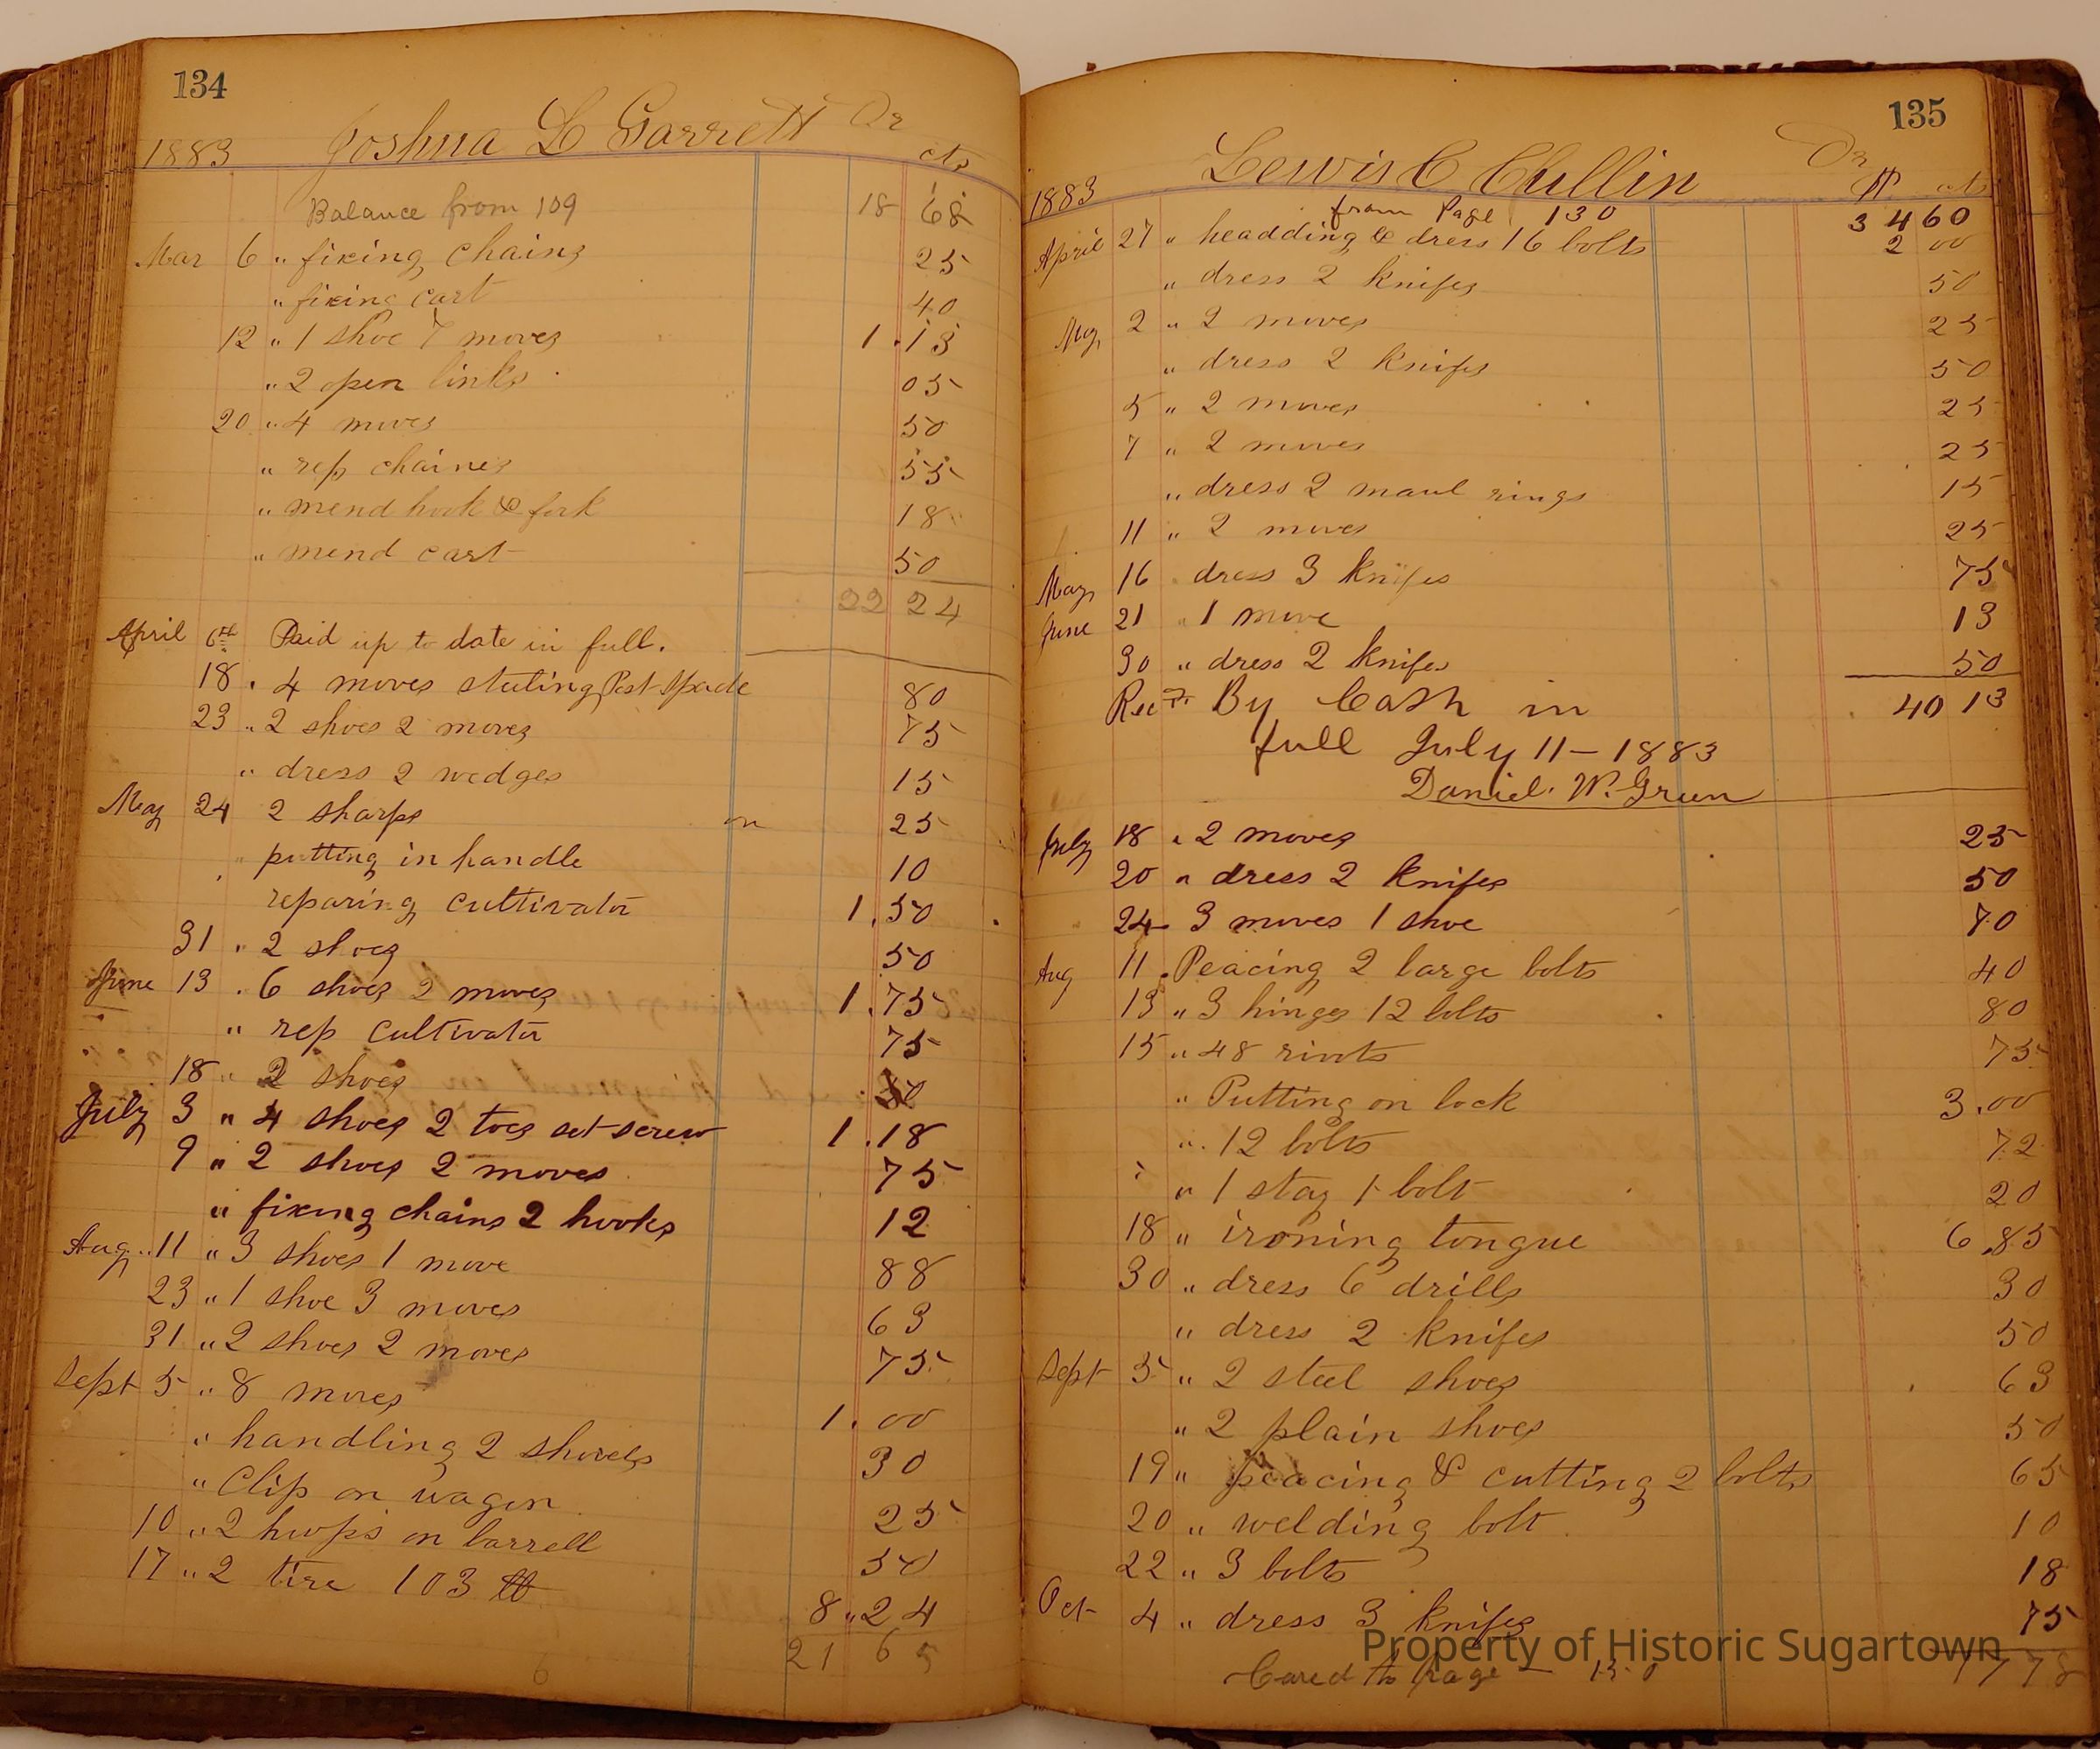 134
Joshua L Garrett Dr
1883 cts
Balance from 109 18 68
Mar 6 " fixing chains 25
" fixing cart 40
12 " 1 shoe 7 moves 1.13
" 2 open links 05
20 " 4 moves 50
" rep chaines 55
" mend hook & fork 18
" mend cart 50
22 24
April 6th Paid up to date in full.
18 . 4 moves steeling Post Spade 80
23 " 2 shoes 2 moves 75
" dress 2 wedges 15
May 24 2 sharps on 25
" putting in handle 10
reparing cultivator 1.50
31 " 2 shoes 50
June 13 . 6 shoes 2 moves 1.75
" rep cultivator 75
18 " 2 shoes 50
July 3 " 4 shoes 2 toes set screw 1.18
9 " 2 shoes 2 moves 75
" fixing chains 2 hooks 12
Aug 11 " 3 shoes 1 move 88
23 " 1 shoe 3 moves 63
31 " 2 shoes 2 moves 75
Sept 5 " 8 moves 1.00
" handling 2 shovels 30
" Clip on wagon 25
10 " 2 hoops on barrell 50
17 " 2 tire 103 lb 8 " 24
21 65
135
Lewis C Cullin Dr
1883 $ cts
from Page 130 34 60
April 27 " headding & dress 16 bolts 2 00
" dress 2 knifes 50
May 2 " 2 moves 25
" dress 2 knifes 50
5 " 2 moves 25
7 " 2 moves 25
" dress 2 maul rings 15
11 " 2 moves 25
May 16 dress 3 knifes 75
June 21 " 1 move 13
30 " dress 2 knifes 50
Recd By Cash in 40 13
full July 11 - 1883
Daniel. W. Green
July 18 " 2 moves 25
20 " dress 2 knifes 50
24 3 moves 1 shoe 70
Aug 11 . Peacing 2 large bolts 40
13 " 3 hinges 12 bolts 80
15 " 48 rivets 75
" Putting on lock 3.00
" 12 bolts 72
" 1 stay 1 bolt 20
18 " ironing tongue 6.85
30 " dress 6 drills 30
" dress 2 knifes 50
Sept 5 " 2 steel shoes 63
" 2 plain shoes 50
19 " peacing & cutting 2 bolts 65
20 " welding bolt 10
22 " 3 bolts 18
Oct 4 " dress 3 knifes 75
Property of Historic Sugartown
Cared to Page - 150 17 78